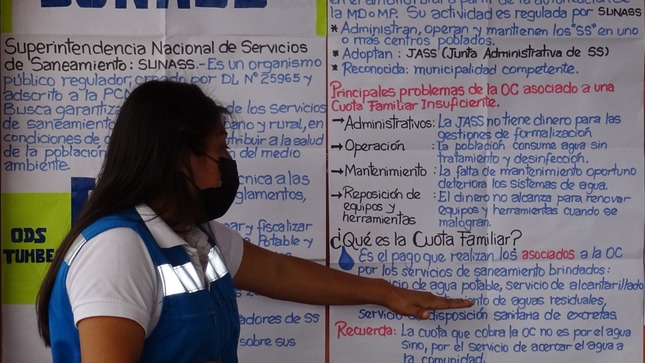 SUNASS
Superintendencia Nacional de Servicios
de Saneamiento: SUNASS.- Es un organismo
público regulador, creado por DL N° 25965 y
adscrito a la PCM
Busca garantiza de los servicios
de saneamiento ano y rural, en
condiciones de ribuir a la salud
de la población n del medio
ambiente.
cnica a las
glamentos,
ar y fiscalizar
Potable y
adores de SS
sobre sus
ODS
TUMBE
la MD o MP. Su actividad es regulada por SUNASS
*Administran, operan y mantienen los "SS" en uno
o más centros poblados.
*Adoptan: JASS (Junta Administrativa de SS)
*Reconocida: municipalidad competente.
Principales problemas de la OC asociado a una
Cuota Familiar Insuficiente.
→Administrativos: La JASS no tiene dinero para las
gestiones de formalización
→Operación: La población consume agua sin
tratamiento y desinfección.
→Mantenimiento: La falta de mantenimiento oportuno
deteriora los sistemas de agua.
→Reposición de equipos y herramientas: El dinero no alcanza para renovar
equipos y herramientas cuando se
malogran.
¿Qué es la Cuota Familiar?
Es el pago que realizan los asociados a la OC
por los servicios de saneamiento brindados:
icio de agua potable, servicio de alcantarillado
iento de aguas residuales,
servicio de disposición sanitaria de excretas
Recuerda: La cuota que cobra la OC no es por el agua
sino, por el servicio de acercar el agua a
la comunidad.